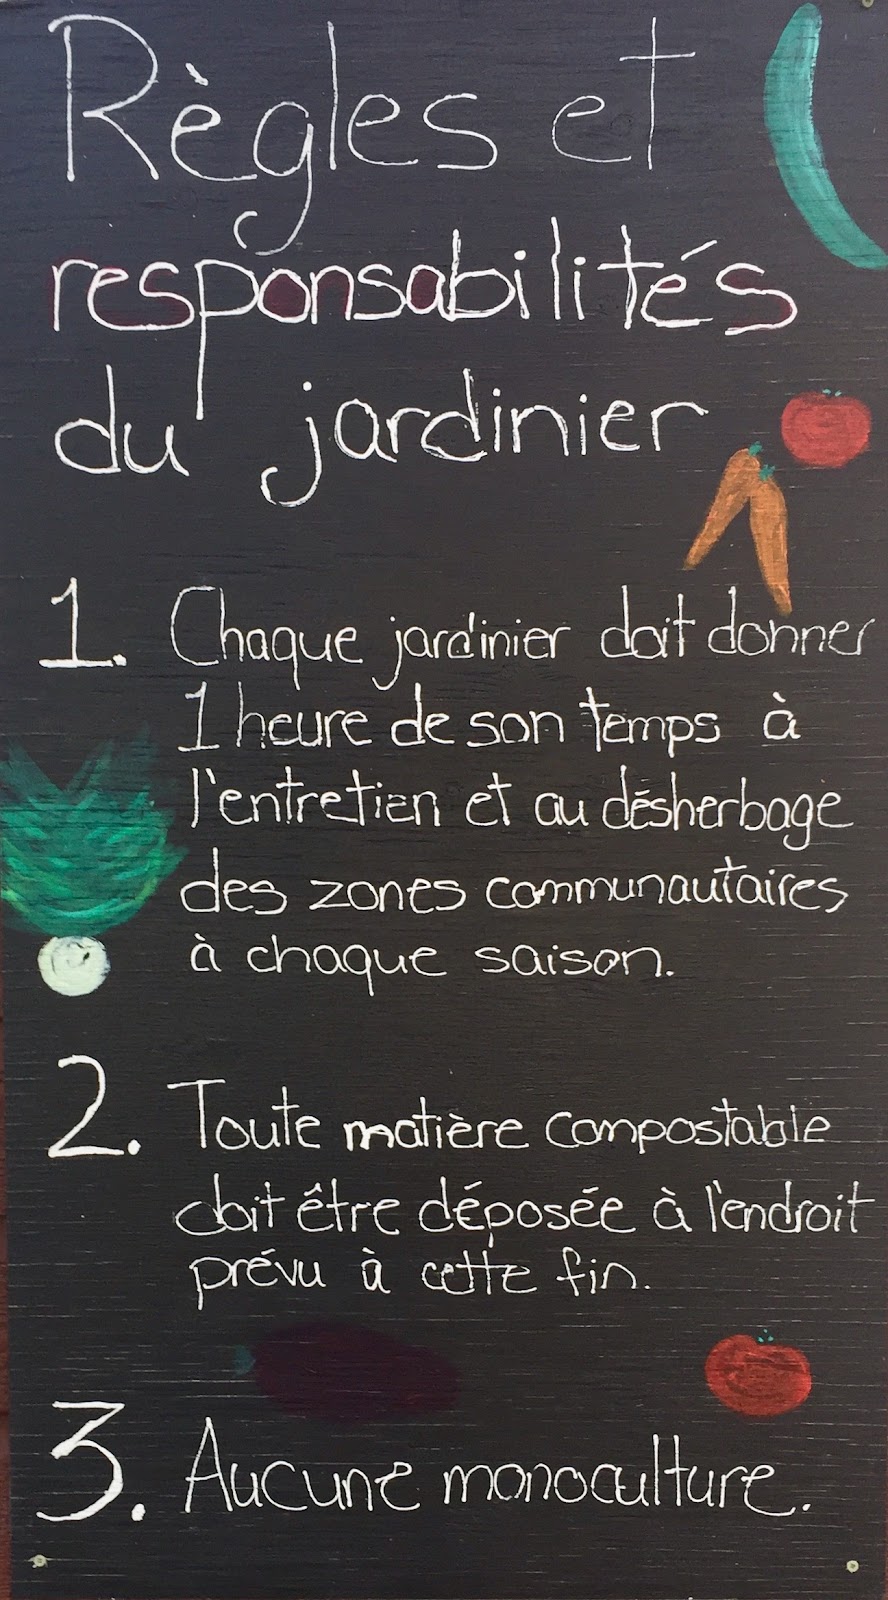 Règles et
responsabilités
du jardinier
1. Chaque jardinier doit donner
1 heure de son temps à
l'entretien et au désherbage
des zones communautaires
à chaque saison.
2. Toute matière compostable
doit être déposée à l'endroit
prévu à cette fin.
3. Aucune monoculture.